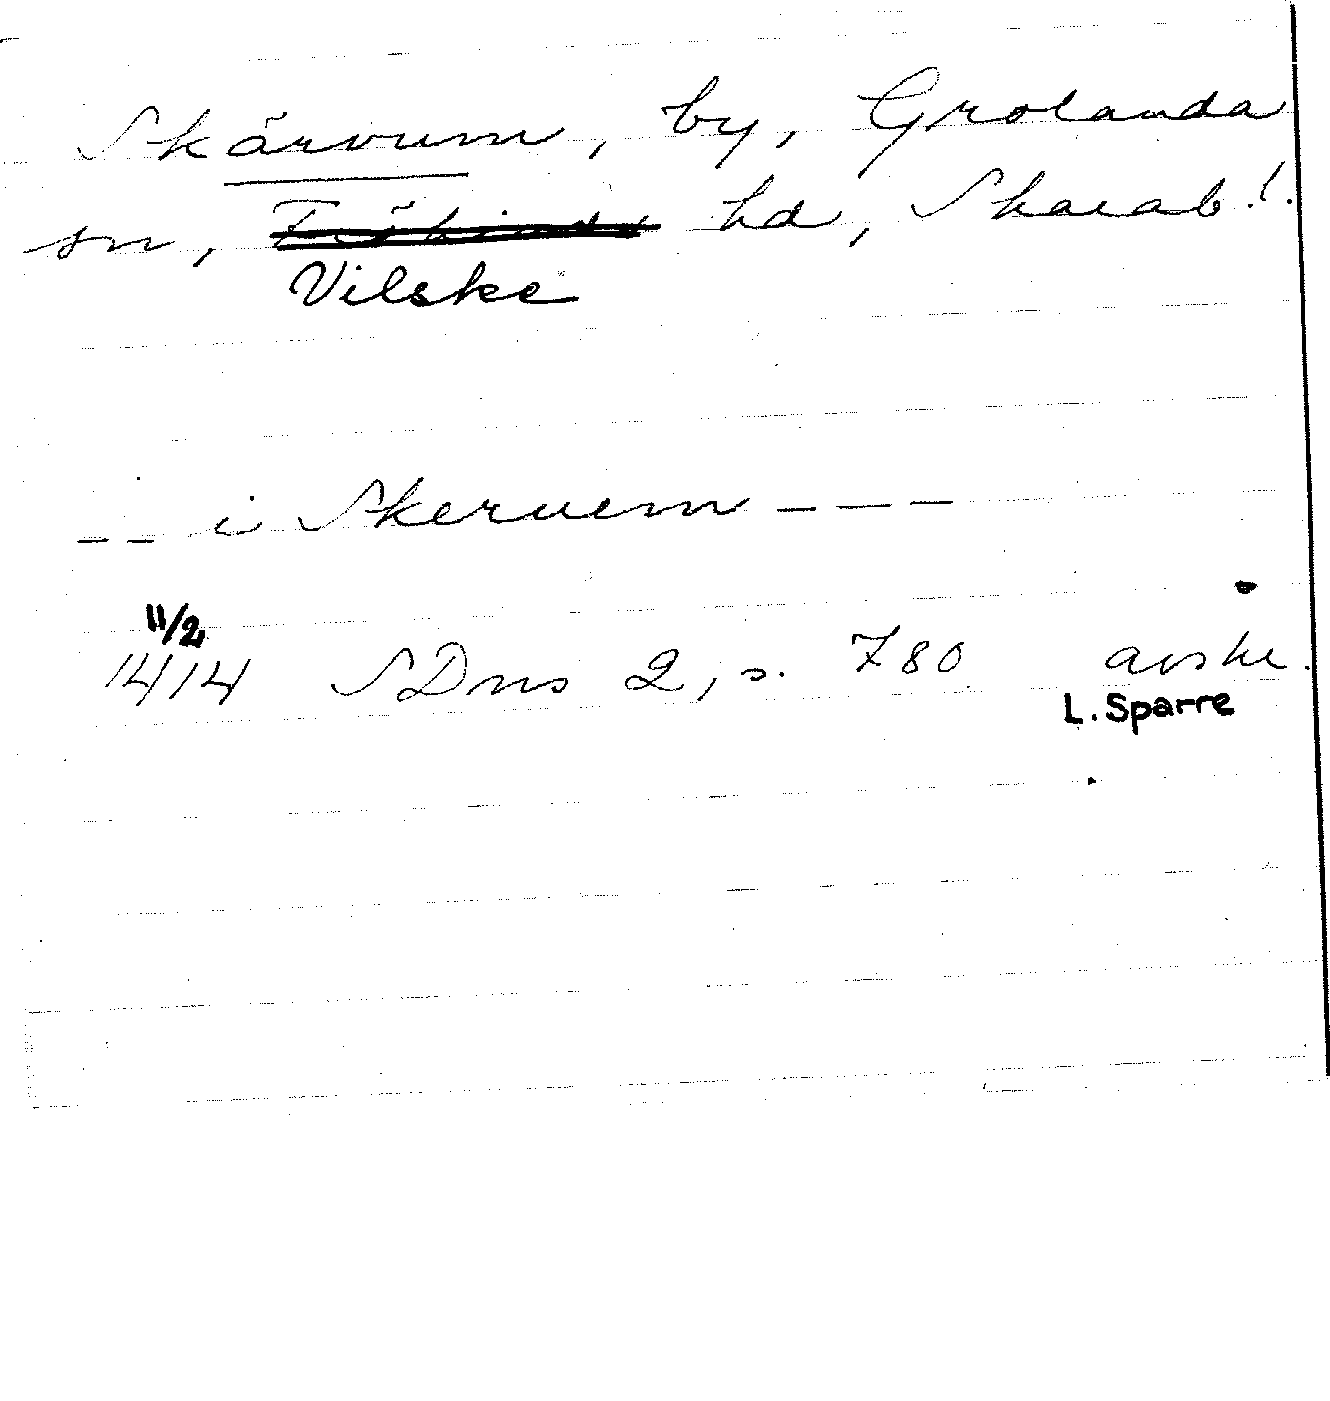 Skärvum, by, Grolanda
sn, Frökinds hd, Skarab.l.
Vilske
_ _ i Skeruem _ _ _
11/2
1414 SDns 2, s. 780 avskr.
L. Sparre